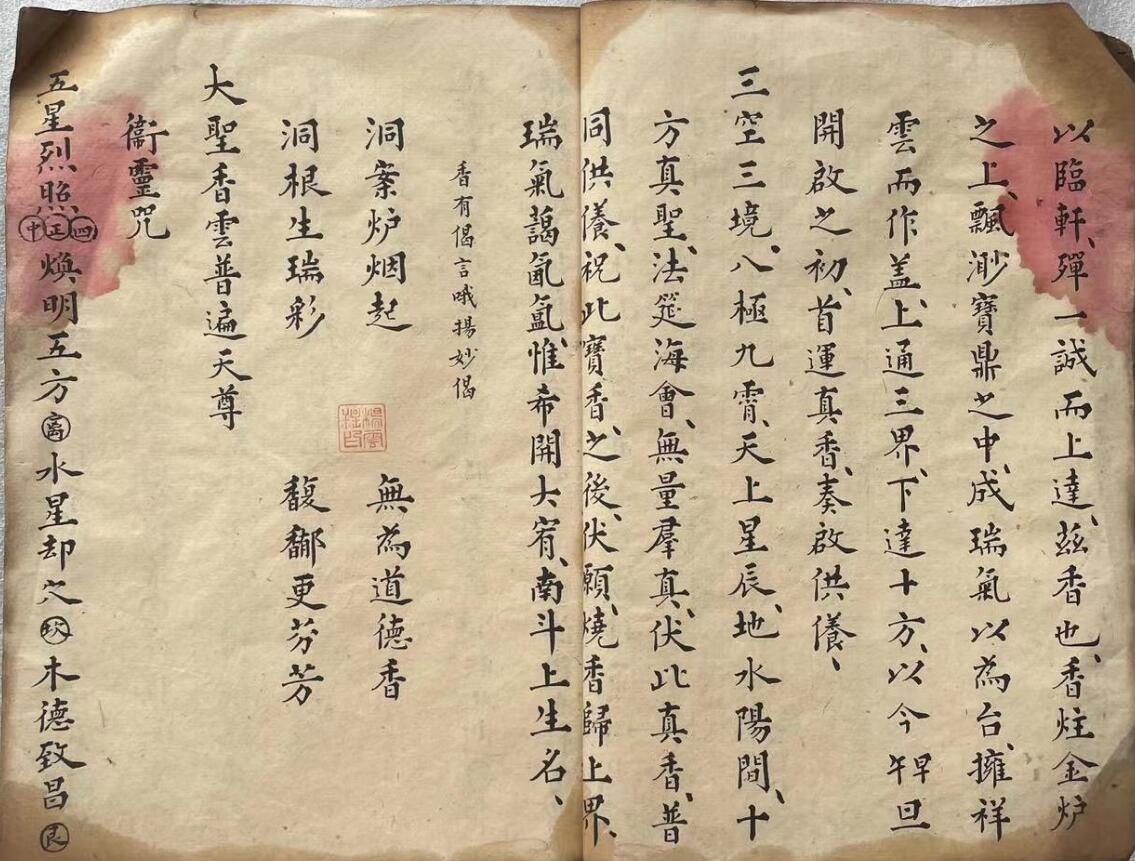 以臨軒、殫一誠而上達、茲香也、香炷金炉
之上、飄渺寶鼎之中、成瑞氣以為台、擁祥
雲而作盖、上通三界、下達十方、以今早午旦
開啟之初、首運真香、奏啟供養、
三空三境、八極九霄、天上星辰、地水陽間、十
方真聖、法筵海會、無量羣真、伏此真香、普
同供養、祝此寶香、之後、伏願、燒香歸上界、
瑞氣藹氤氳、惟希開大宥、南斗上生名、
香有偈言哦揚妙偈
洞案炉烟起 無為道德香
洞根生瑞彩 馥鄉更芬芳
大聖香雲普遍天尊
衞靈咒
五星烈照四正中煥明五方离水星却灾坎木德致昌艮
楊雲
程印